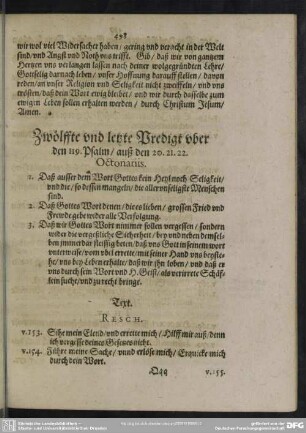 498
wir wol viel Widersacher haben/ gering vnd veracht in der Welt
sind/ vnd Angst vnd Noth vns trifft. Gib/ daß wir von gantzem
Hertzen vns verlangen lassen nach deiner wolgegründten Lehre/
Gottselig darnach leben/ vnser Hoffnung darauff stellen/ davon
reden/ an vnser Religion vnd Seligkeit nicht zweiffeln/ vnd vns
trösten/ daß dein Wort ewig bleibet/ vnd wir durch dasselbe zum
ewigen Leben sollen erhalten werden/ durch Christum Jesum/
Amen.
Zwölffte vnd letzte Predigt vber
den 119. Psalm/ auß den 20. 21. 22.
Octonariis.
1. Daß ausser dem Wort Gottes kein Heyl noch Seligkeit/
vnd die/ so dessen mangeln/ die aller vnseligste Menschen
sind.
2. Daß Gottes Wort denen/ die es lieben/ grossen Fried vnd
Frewde gebe wider alle Verfolgung.
3. Daß wir Gottes Wort nimmer sollen vergessen/ sondern
wider die vergeßliche Sicherheit/ bey vnd neben demsel-
ben immerdar fleissig beten/ daß vns Gott in seinem wort
vnterweise/ vom vbel errette/ mit seiner Hand vns beyste-
he/ vns bey Leben erhalte/ daß wir ihn loben/ vnd daß er
vns durch sein Wort vnd H. Geist/ als verirrete Schäf-
lein suche/ vnd zu recht bringe.
Text.
RESCH.
v. 153. Sihe mein Elend/ vnd errette mich/ Hilff mir auß/ denn
ich vergisse deines Gesetzes nicht.
v. 154. Führe meine Sache/ vnnd erlöse mich/ Erquicke mich
durch dein Wort.
Qqq
v. 155.